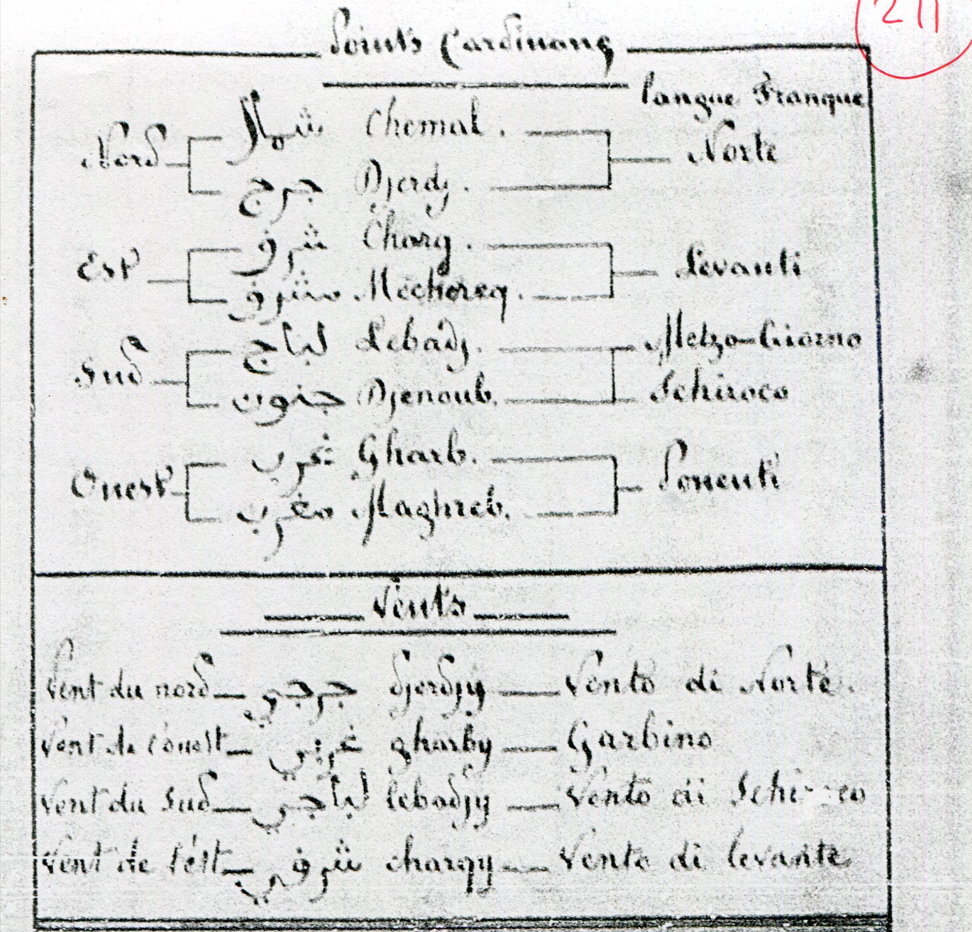 211
Points Cardinaux
langue Franque
Nord شمال Chemal. Norte
جرج Djerdj.
Est شرق Charq. Levanti
مشرق Mechereq.
Sud لباج Lebadj. Metzo-Giorno
جنوب Djenoub. Schiroco
Ouest غرب Gharb. Ponenti
مغرب Maghreb.
Vents
Vent du nord جرجي djerdjy Vento di Norte.
Vent de l'ouest غربي gharby Garbino
Vent du Sud لباجي lebadjy Vento di
Vent de l'est شرقي charqy Vento di levante